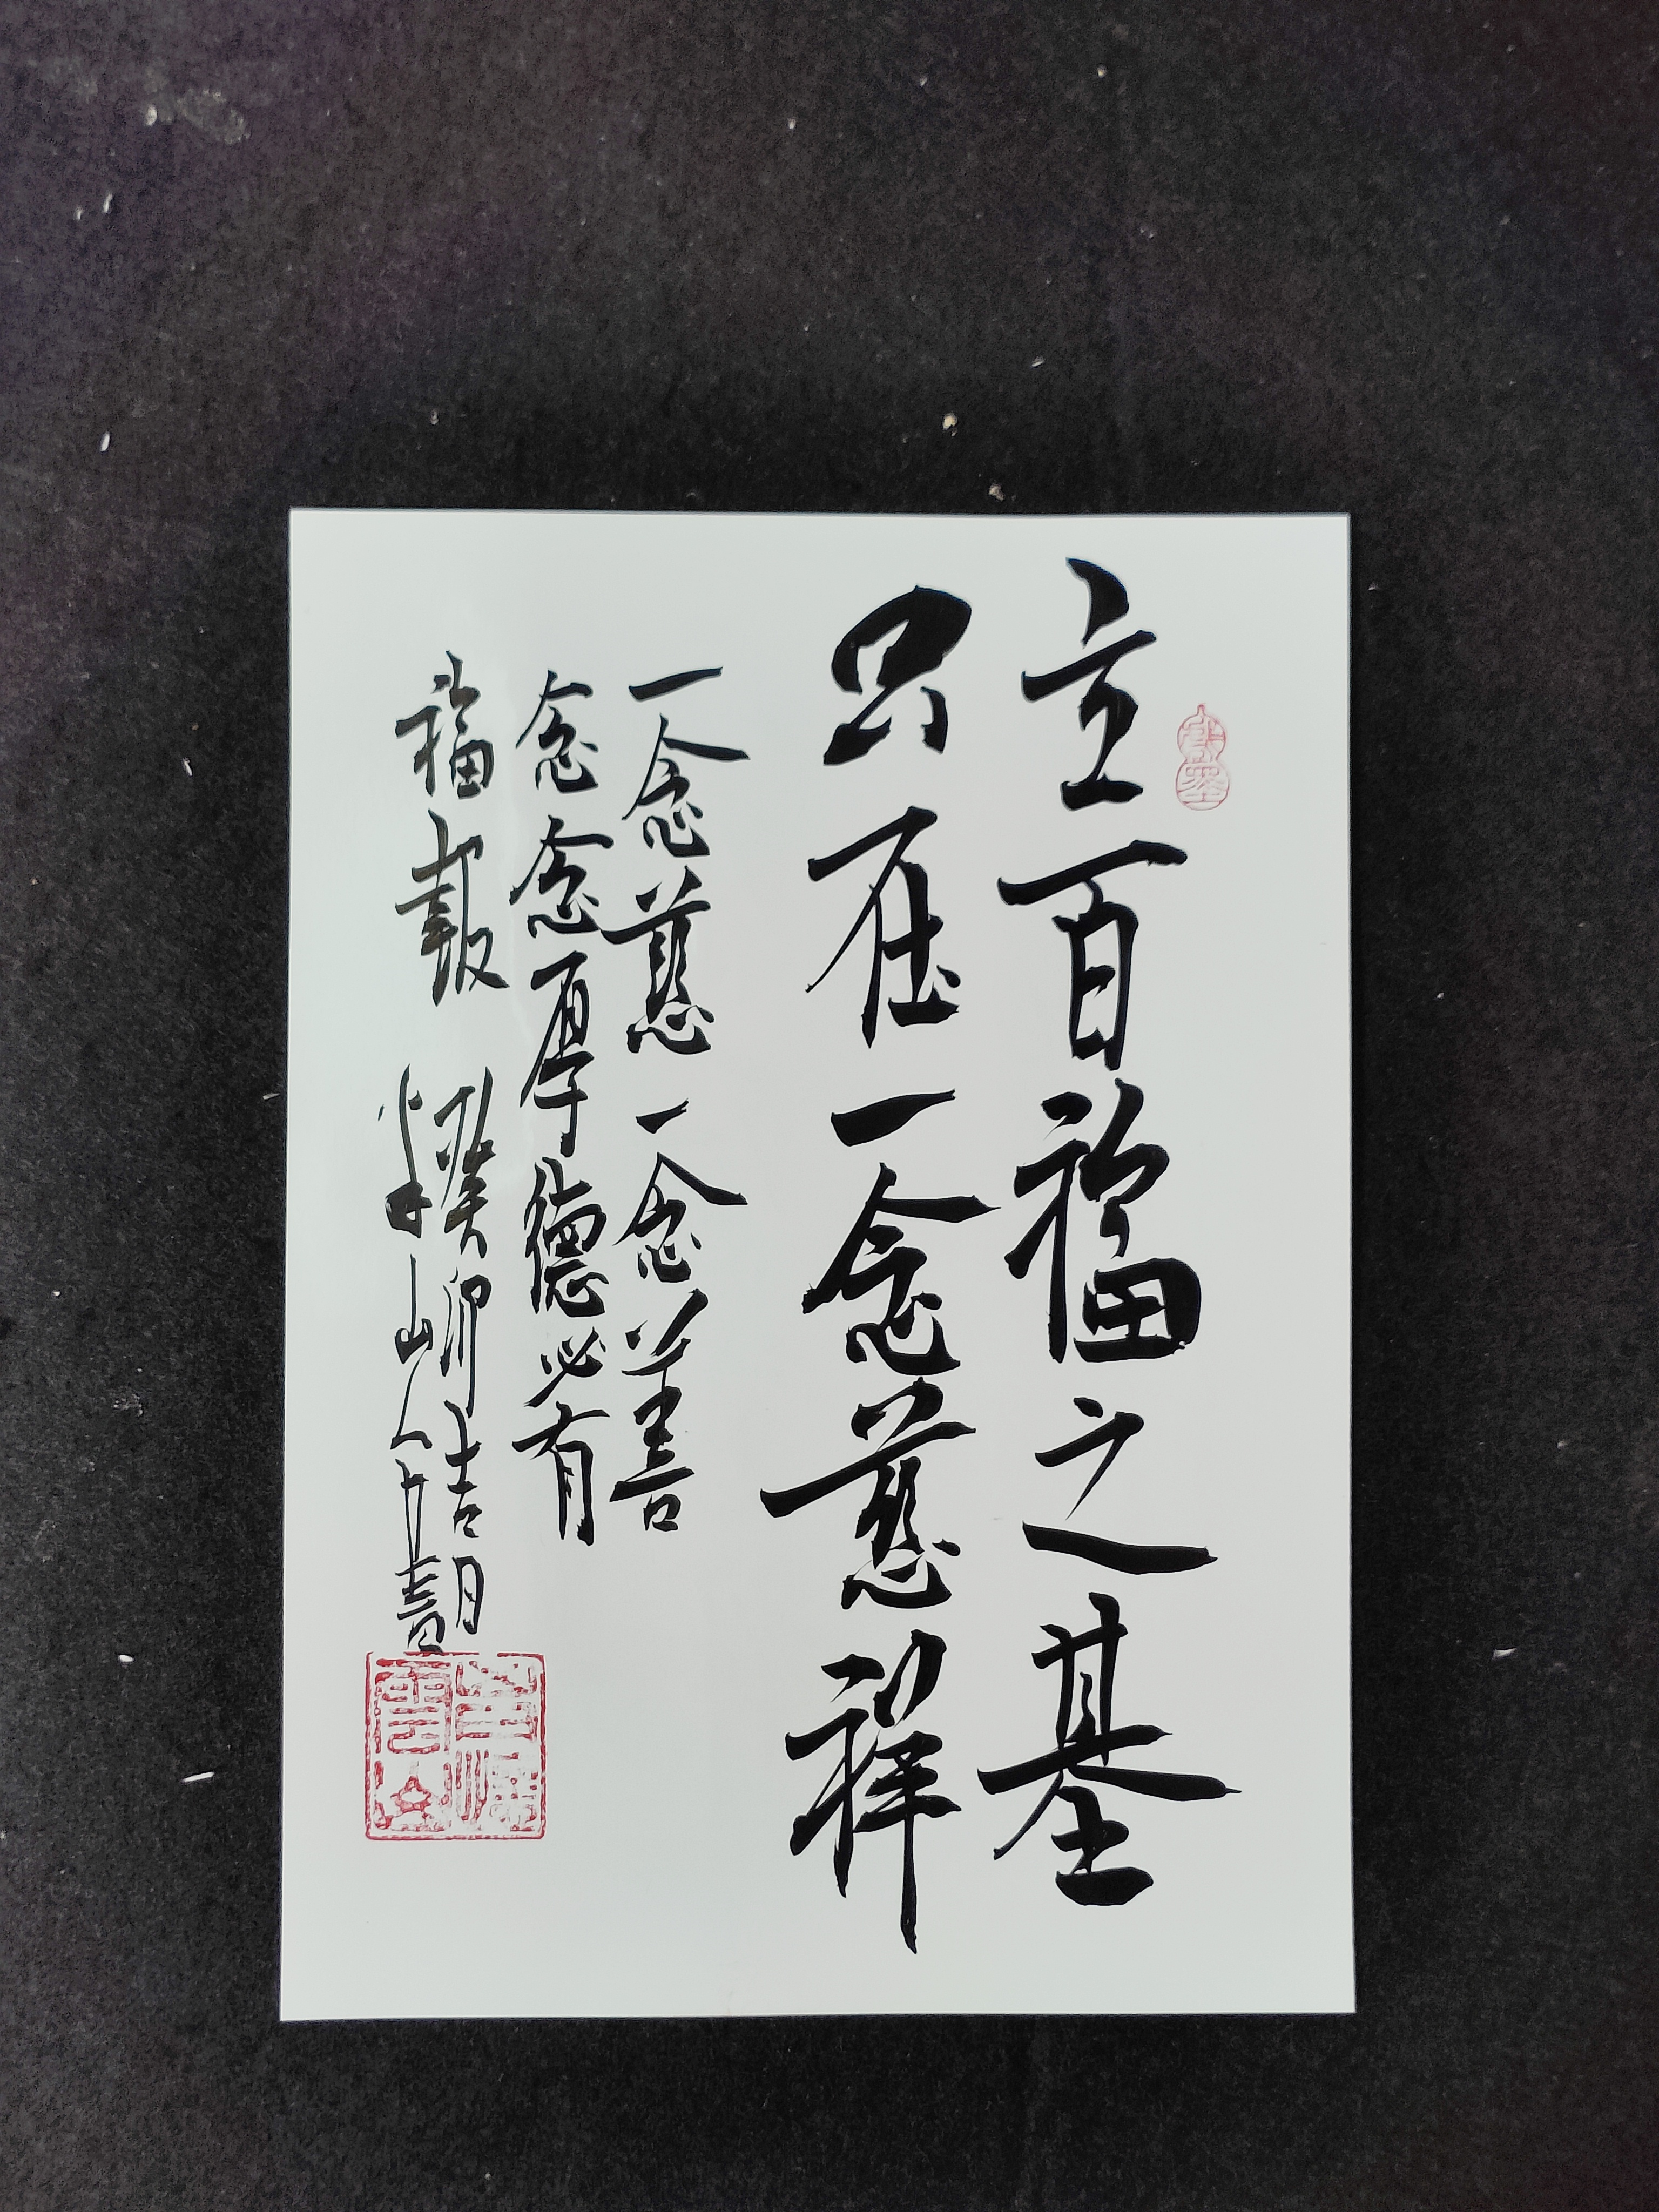 立百福之基
只在一念慈祥
一念慈一念善
念念厚德必有
福報
癸卯吉月
山人書